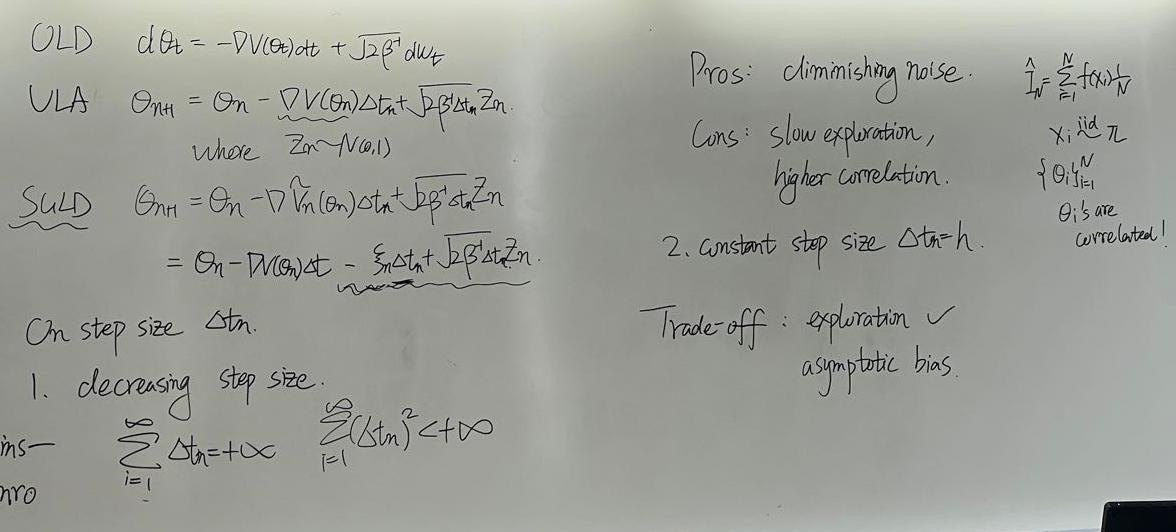 OLD dθt = -∇V(θt)dt + √2β⁻¹ dWt
ULA θn+1 = θn - ∇V(θn)Δtn + √2β⁻¹Δtn Zn.
where Zn ~ N(0,1)
SGLD θn+1 = θn - ∇Ṽn(θn)Δtn + √2β⁻¹Δtn Zn
= θn - ∇V(θn)Δt - ξnΔtn + √2β⁻¹Δtn Zn.
On step size Δtn.
1. decreasing step size.
ins—
∑_{i=1}^{∞} Δtn = +∞ ∑_{i=1}^{∞} (Δtn)² < +∞
nro
Pros: diminishing noise.
Cons: slow exploration,
higher correlation.
2. constant step size Δtn = h.
Trade-off : exploration ✓
asymptotic bias.
Î_N = ∑_{i=1}^{N} f(xi) 1/N
xi iid ~ π
{θi}_{i=1}^{N}
θi's are
correlated!